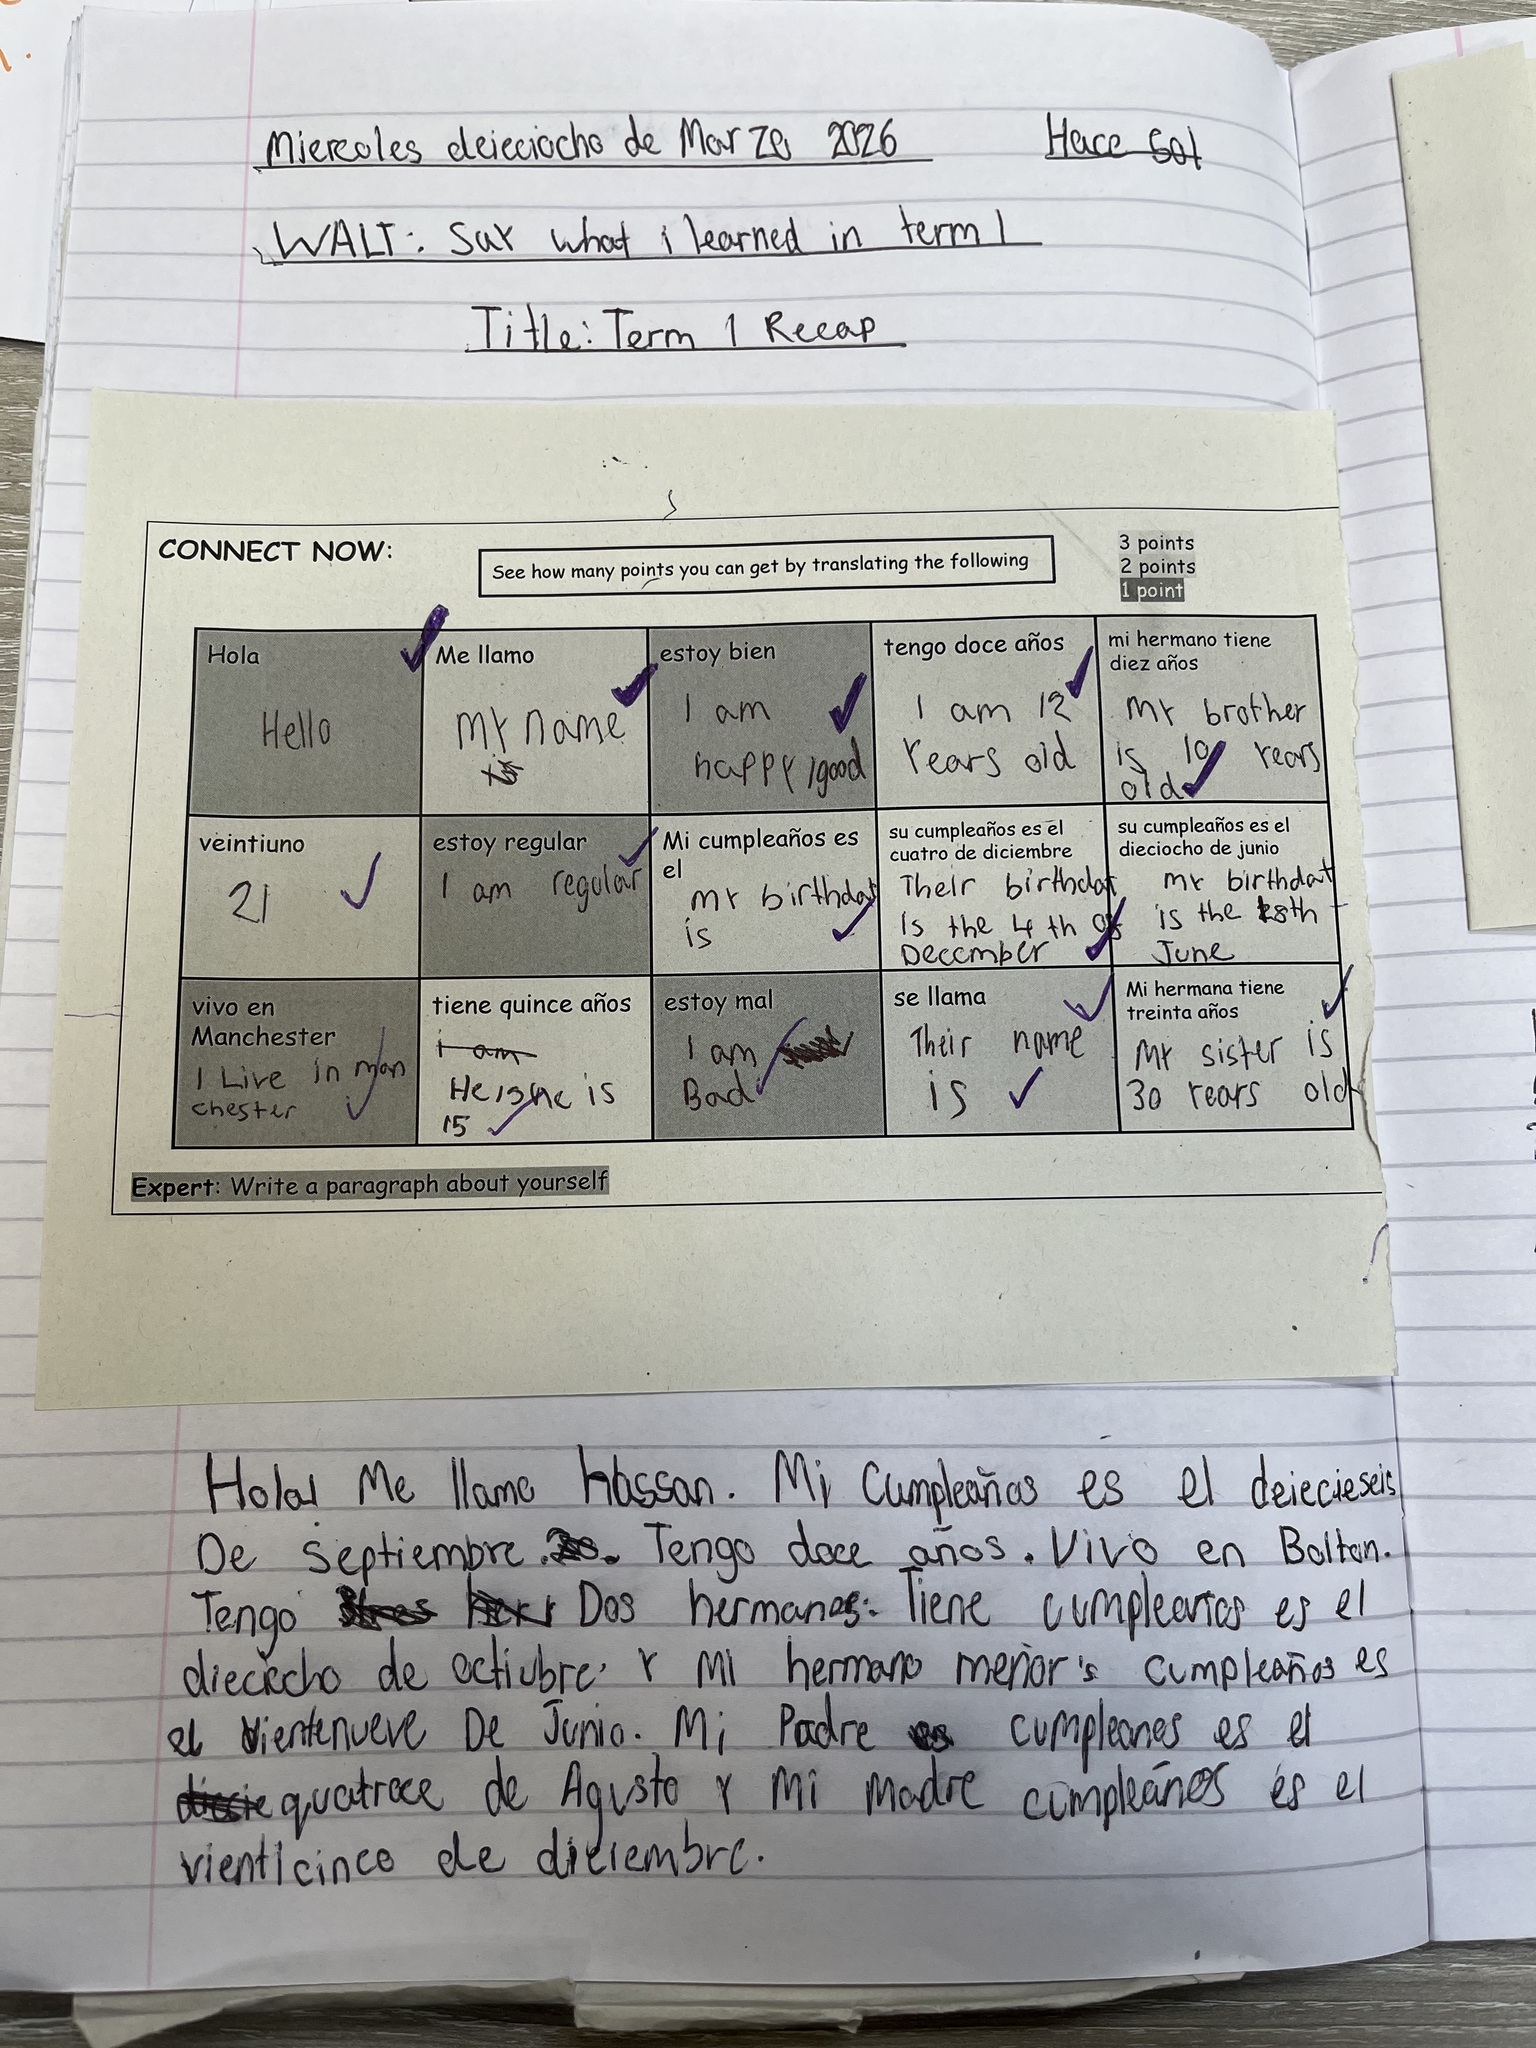 Miercoles deieciocho de Marzo 2026 Hace Sol
WALT: Say what i learned in term 1
Title: Term 1 Recap
CONNECT NOW:
See how many points you can get by translating the following
3 points
2 points
1 point
Hola
Hello
Me llamo
My name
estoy bien
I am
happy/good
tengo doce años
I am 12
years old
mi hermano tiene
diez años
My brother
is 10 years
old
veintiuno
21
estoy regular
I am regular
Mi cumpleaños es
el
my birthday
is
su cumpleaños es el
cuatro de diciembre
Their birthday
is the 4th of
December
su cumpleaños es el
dieciocho de junio
my birthday
is the 18th
June
vivo en
Manchester
I Live in man
chester
tiene quince años
i am
He is
is
15
estoy mal
I am
Bad
se llama
Their name
is
Mi hermana tiene
treinta años
My sister is
30 years old
Expert: Write a paragraph about yourself
Hola! Me llamo hassan. Mi Cumpleaños es el deiecieseis
De septiembre. Tengo doce años. Vivo en Bolton.
Tengo Dos hermanos. Tiene cumpleaños es el
dieciocho de octiubre y mi hermano menor's cumpleaños es
el vientenueve De Junio. Mi Padre cumpleanos es el
quatroce de Agusto y mi madre cumpleános es el
vienticinco de diciembre.